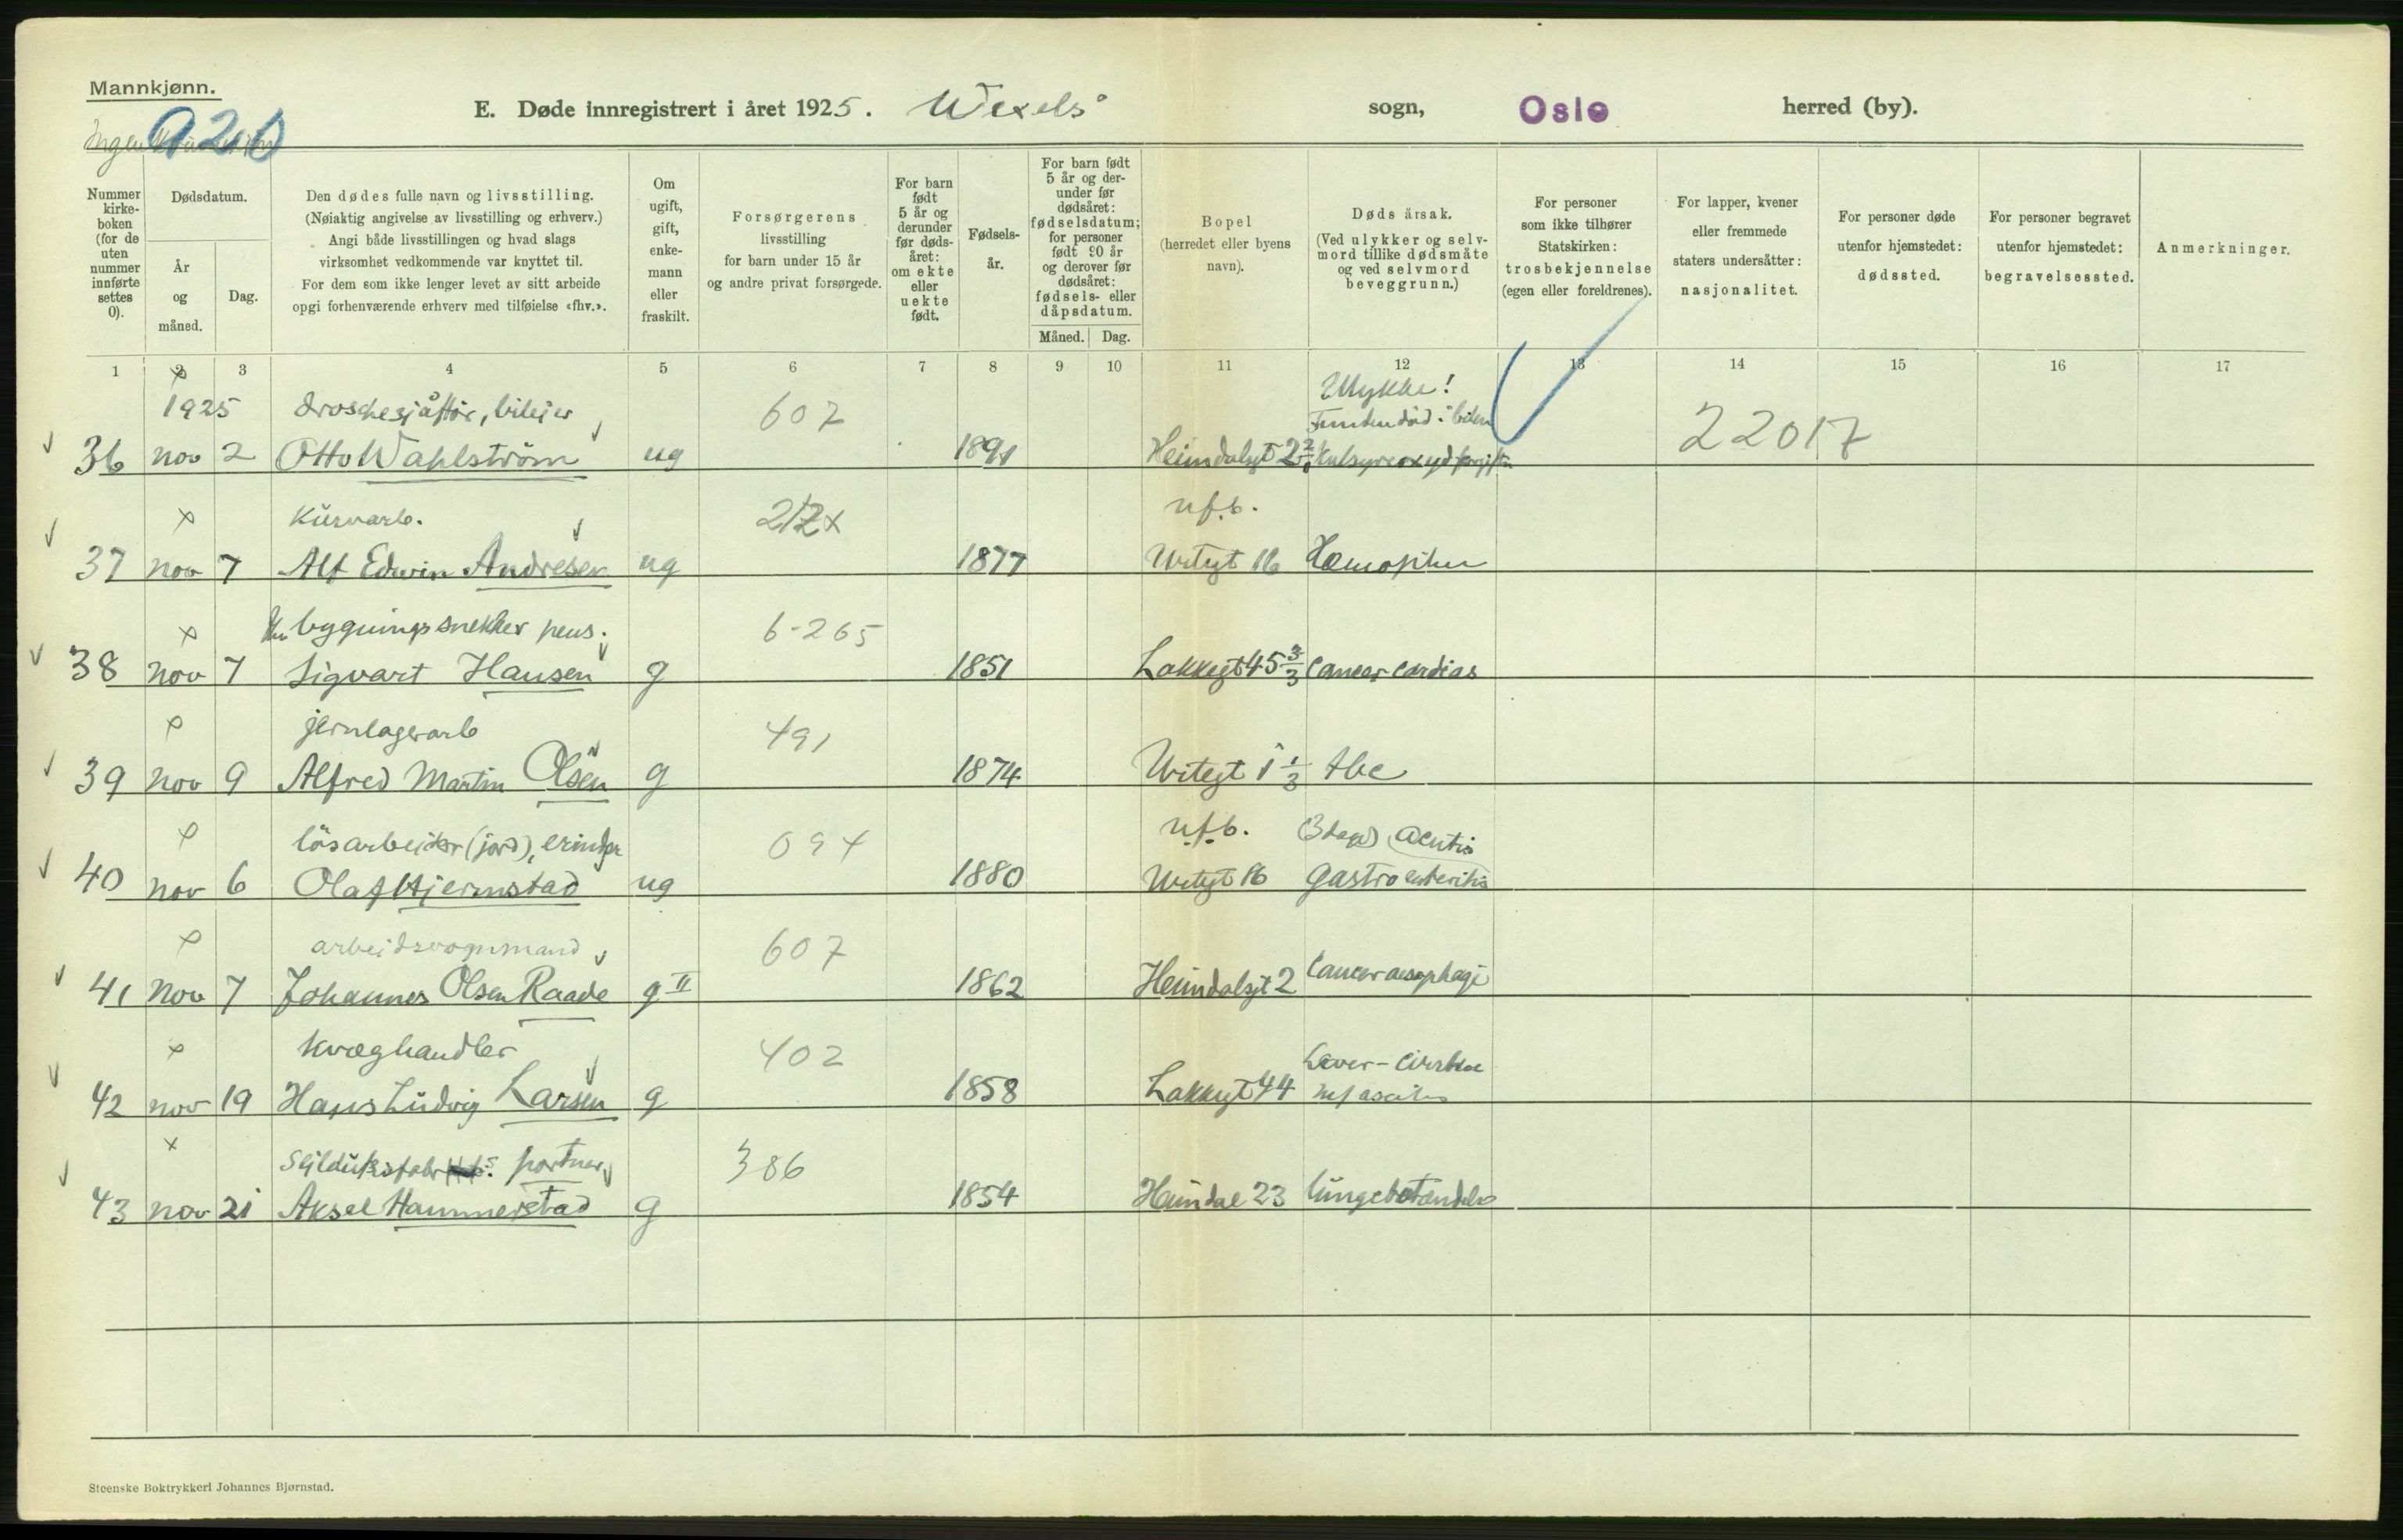 Mannkjønn.
E. Døde innregistrert i året 1925. Wexels sogn, Oslo herred (by).
Ingen
Nummer kirke-boken (for de uten nummer innførte settes 0).
Dødsdatum.
År og måned.
Dag.
Den dødes fulle navn og livsstilling.
(Nøiaktig angivelse av livsstilling og erhverv.)
Angi både livsstillingen og hvad slags
virksomhet vedkommende var knyttet til.
For dem som ikke lenger levet av sitt arbeide
opgi forhenværende erhverv med tilføielse «fhv.».
Om ugift, gift, enke-mann eller fraskilt.
Forsørgerens livsstilling
for barn under 15 år
og andre privat forsørgede.
For barn født 5 år og derunder før døds-året: om ekte eller uekte født.
Fødsels-år.
For barn født 5 år og der-under før dødsåret: fødselsdatum; for personer født 90 år og derover før dødsåret: fødsels- eller dåpsdatum.
Måned. Dag.
Bopel
(herredet eller byens navn).
Dødsårsak.
(Ved ulykker og selv-mord tillike dødsmåte og ved selvmord beveggrunn.)
For personer som ikke tilhører Statskirken: trosbekjennelse (egen eller foreldrenes).
For lapper, kvener eller fremmede staters undersåtter: nasjonalitet.
For personer døde utenfor hjemstedet: dødssted.
For personer begravet utenfor hjemstedet: begravelsessted.
Anmerkninger.
1 2 3 4 5 6 7 8 9 10 11 12 13 14 15 16 17
1925 droschesjåffør, bileier 607 Ulykke!
Funden død i bilen 22017
36 nov 2 Otto Wahlström ug 1891 Heimdalsgt 2 Kulsyreoxydforgiftn
x Kurvarb. 212x u.f.b.
37 nov 7 Alf Edwin Andresen ug 1877 Urtegt 16
x bygningssnekker pens. 6-265
38 nov 7 Sigvart Hansen g 1851 Lakkegt 45 3/3 Cancer cardias
x jernlagerarb 491
39 nov 9 Alfred Martin Olsen g 1874 Urtegt 1 1/3 tbc
x løsarbeider (jord), 094 u.f.b. (3 dage) Acutis
40 nov 6 Olaf Hjermstad ug 1880 Urtegt 16 Gastroenteritis
x arbeidsvognmand 607
41 nov 7 Johannes Olsen Raade g II 1862 Heimdalsgt 2 Cancer aesophagi
x Kvæghandler 402 Lever-cirrhose
42 nov 19 Hans Ludvig Larsen g 1858 Lakkegt 44 m/ ascites
x Seildugsfabr. portner 386
43 nov 21 Aksel Hammerstad g 1854 Heimdal 23 lungebetændelse
Steenske Boktrykkeri Johannes Bjørnstad.